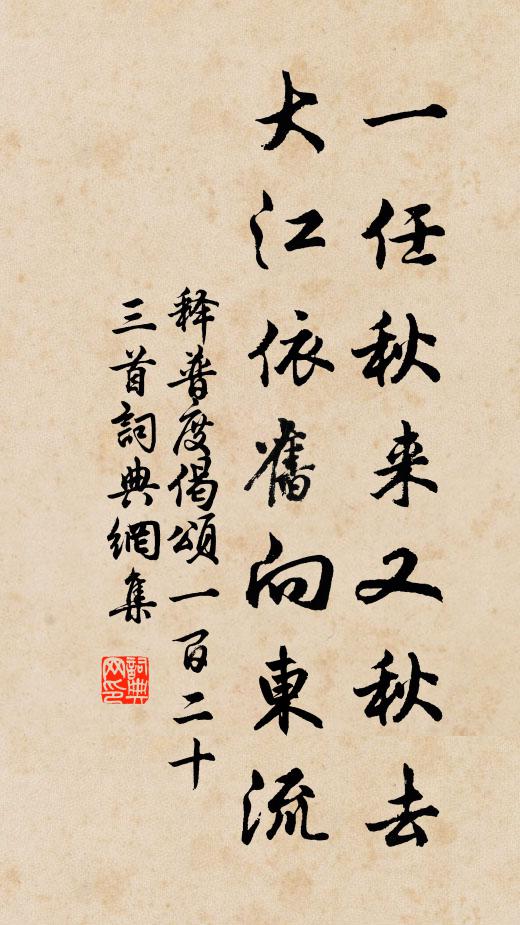 一任秋来又秋去
大江依舊向東流
释普度偈頌一百二十
三首詞典網集
詞典网印